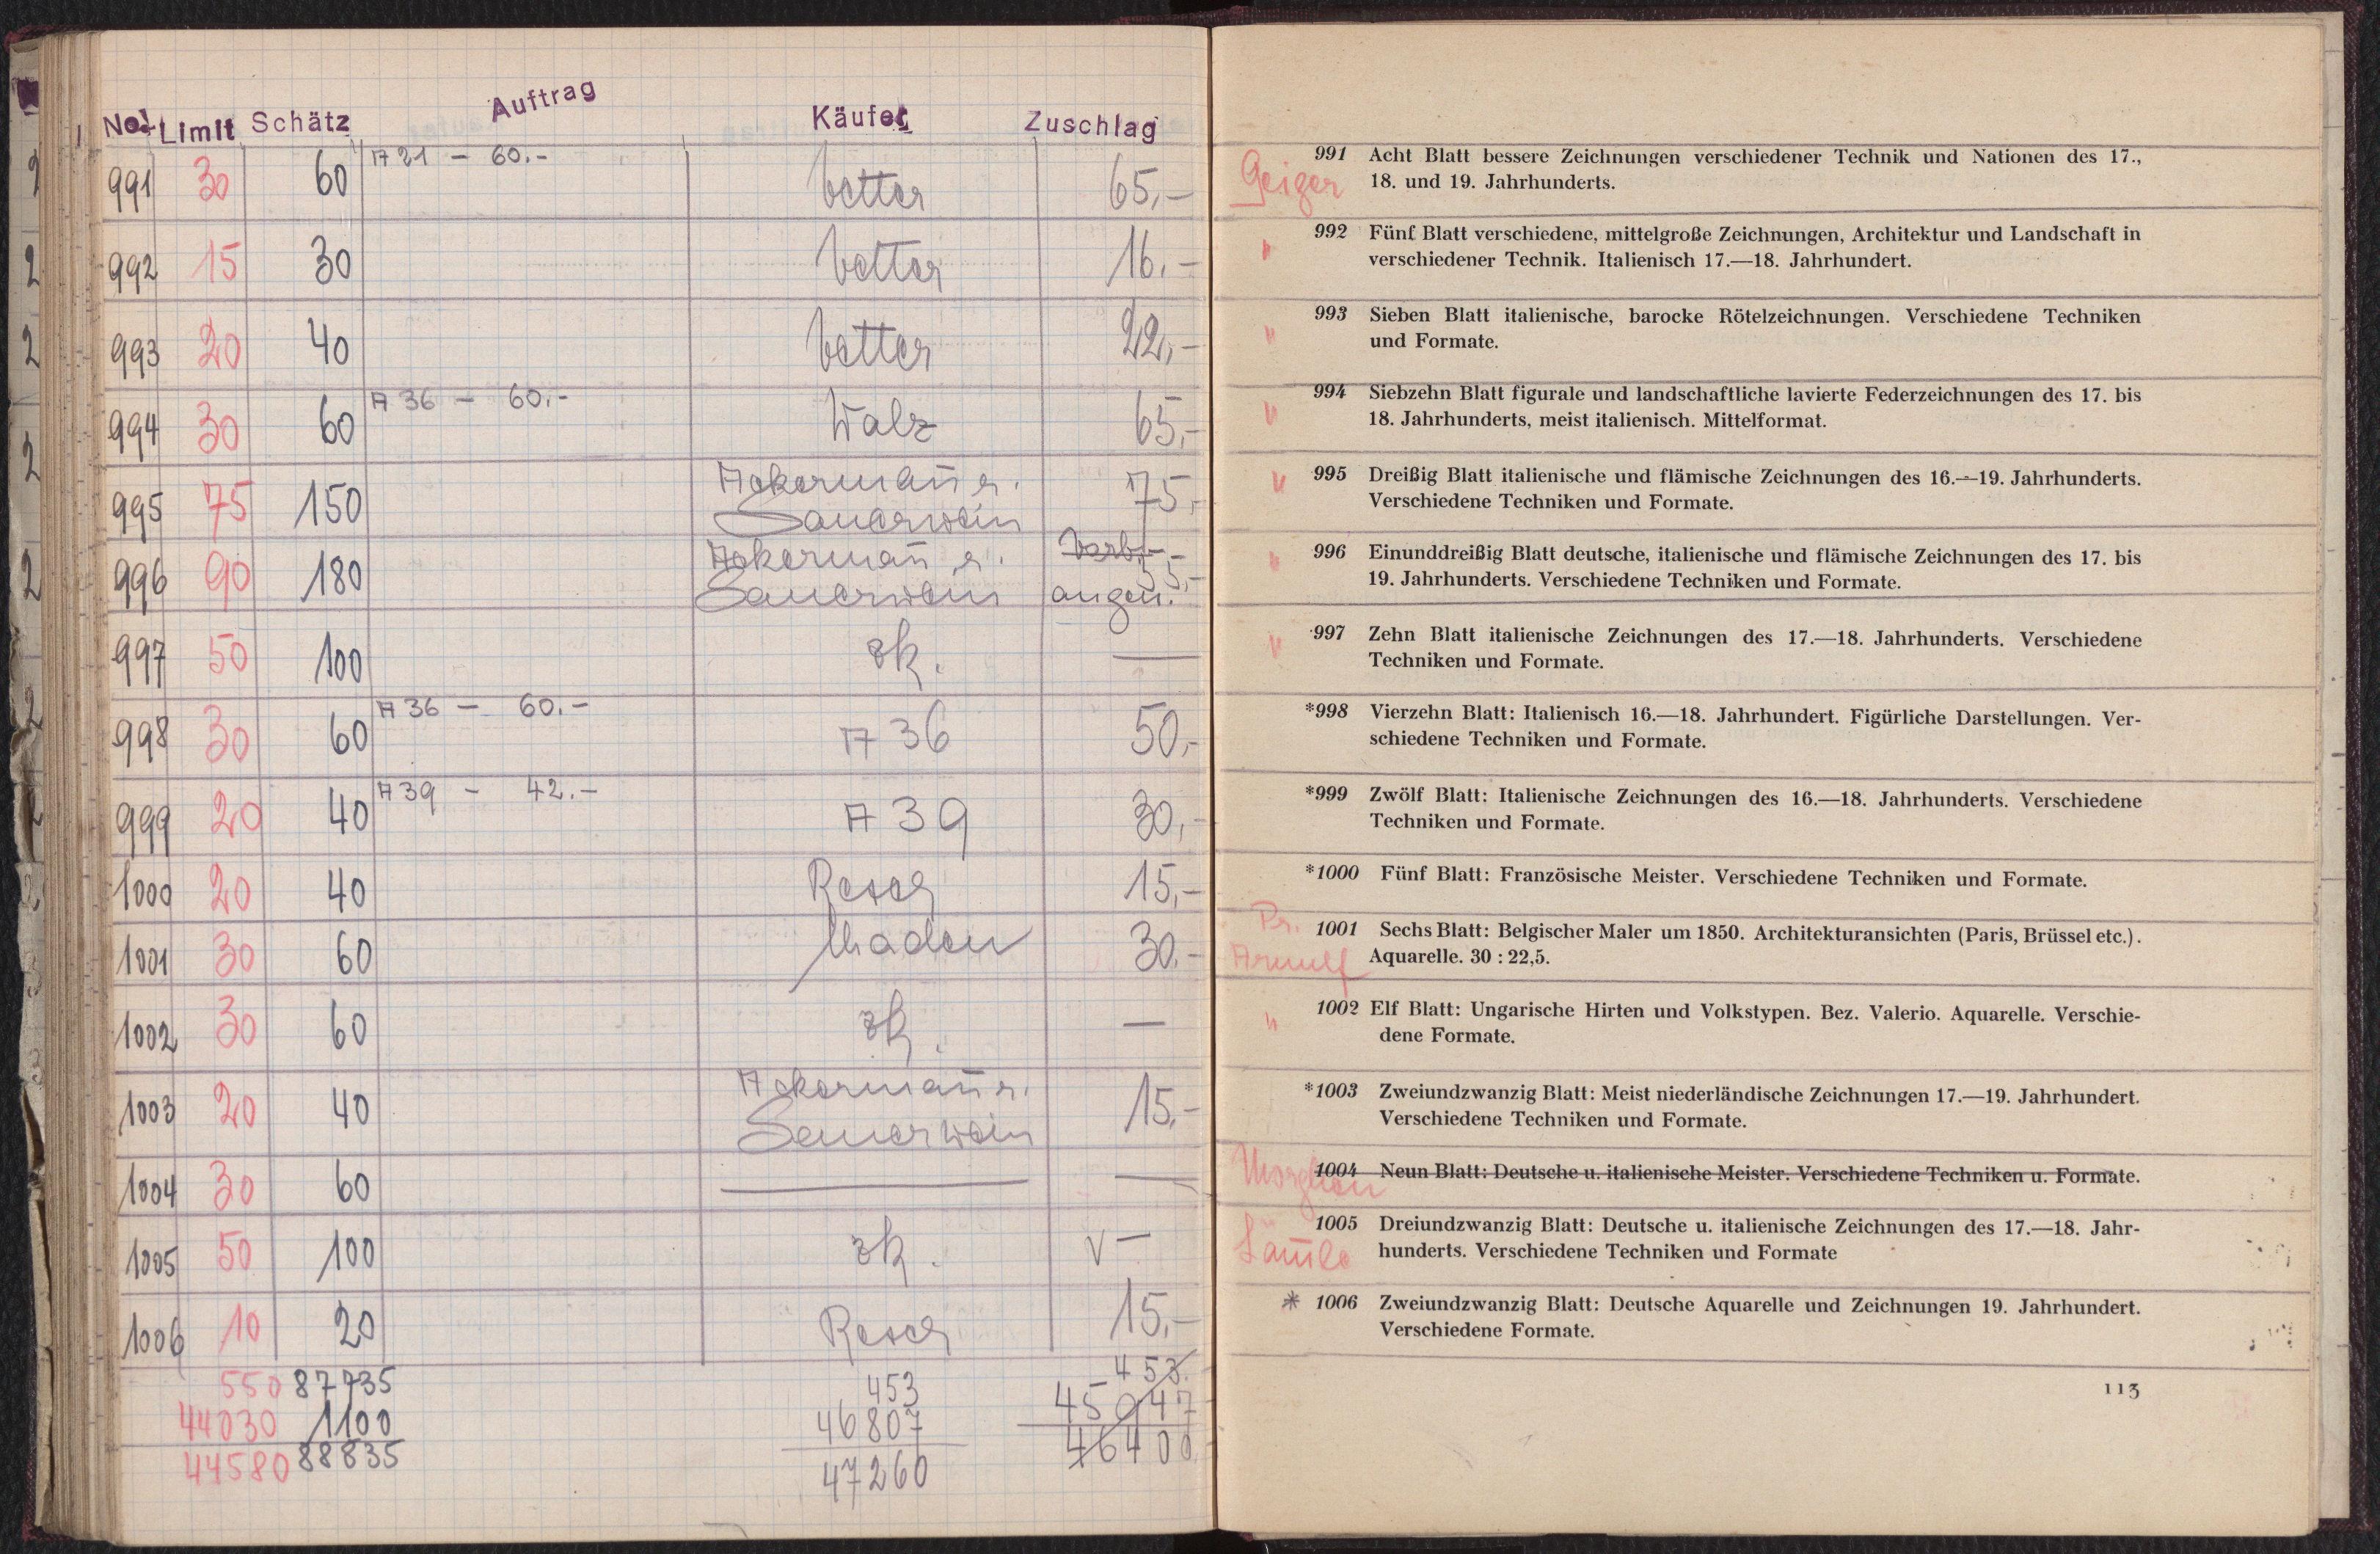 No. Limit Schätz Auftrag Käufer Zuschlag
991 30 60 A 21 – 60.– Vetter 65,–
992 15 30 Vetter 16.–
993 20 40 Vetter 22,–
994 30 60 A 36 – 60.– Walz 65,–
995 75 150 Ackermann u. 75,
Sauerwein
996 90 180 Ackermann u. Vorb. 55,–
Sauerwein angen.
997 50 100 zk. —
998 30 60 A 36 – 60.– A 36 50,–
999 20 40 A 39 – 42.– A 39 30,–
1000 20 40 15,–
1001 30 60 30.–
1002 30 60 zk. —
1003 20 40 Ackermann u. 15,–
Sauerwein
1004 30 60 — —
1005 50 100 zk. V —
1006 10 20 15,–
550 87735 453 453.
44030 1100 46807 45947
44580 88835 47260 46400
Geiger
991 Acht Blatt bessere Zeichnungen verschiedener Technik und Nationen des 17.,
18. und 19. Jahrhunderts.
" 992 Fünf Blatt verschiedene, mittelgroße Zeichnungen, Architektur und Landschaft in
verschiedener Technik. Italienisch 17.—18. Jahrhundert.
" 993 Sieben Blatt italienische, barocke Rötelzeichnungen. Verschiedene Techniken
und Formate.
" 994 Siebzehn Blatt figurale und landschaftliche lavierte Federzeichnungen des 17. bis
18. Jahrhunderts, meist italienisch. Mittelformat.
" 995 Dreißig Blatt italienische und flämische Zeichnungen des 16.—19. Jahrhunderts.
Verschiedene Techniken und Formate.
" 996 Einunddreißig Blatt deutsche, italienische und flämische Zeichnungen des 17. bis
19. Jahrhunderts. Verschiedene Techniken und Formate.
" 997 Zehn Blatt italienische Zeichnungen des 17.—18. Jahrhunderts. Verschiedene
Techniken und Formate.
*998 Vierzehn Blatt: Italienisch 16.—18. Jahrhundert. Figürliche Darstellungen. Ver-
schiedene Techniken und Formate.
*999 Zwölf Blatt: Italienische Zeichnungen des 16.—18. Jahrhunderts. Verschiedene
Techniken und Formate.
*1000 Fünf Blatt: Französische Meister. Verschiedene Techniken und Formate.
Pr. Arnulf
1001 Sechs Blatt: Belgischer Maler um 1850. Architekturansichten (Paris, Brüssel etc.).
Aquarelle. 30 : 22,5.
" 1002 Elf Blatt: Ungarische Hirten und Volkstypen. Bez. Valerio. Aquarelle. Verschie-
dene Formate.
*1003 Zweiundzwanzig Blatt: Meist niederländische Zeichnungen 17.—19. Jahrhundert.
Verschiedene Techniken und Formate.
1004 Neun Blatt: Deutsche u. italienische Meister. Verschiedene Techniken u. Formate.
1005 Dreiundzwanzig Blatt: Deutsche u. italienische Zeichnungen des 17.—18. Jahr-
hunderts. Verschiedene Techniken und Formate
* 1006 Zweiundzwanzig Blatt: Deutsche Aquarelle und Zeichnungen 19. Jahrhundert.
Verschiedene Formate.
113